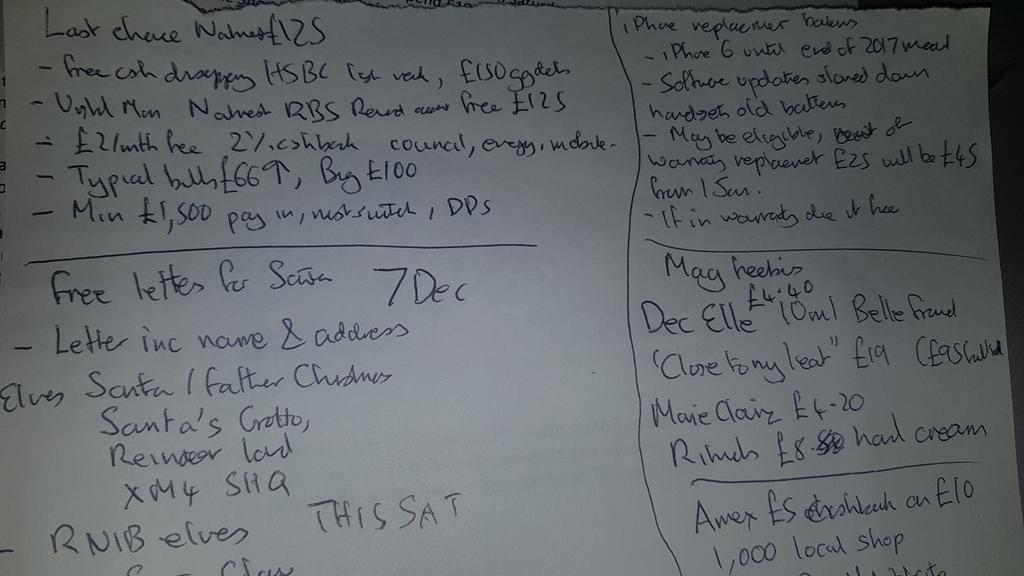 Last chance Natwest £125
- Free cash HSBC last week, £150
- Natwest RBS Reward free £125
- £2/mth fee 2% cashback council, energy, mobile
- Typical bills £66↑, Big £100
- Min £1,500 pay in, must switch, DDs
Free letter for Santa 7 Dec
- Letter inc name & address
Elves Santa / Father Christmas
Santa's Grotto,
Reindeer land
XM4 5HQ
- RNIB elves THIS SAT
iPhone replacement
- iPhone 6 until end of 2017
- Software updates slowed down
handsets old batteries
- May be eligible, out of
warranty replacement £25 will be £45
from 1 Jan.
- If in warranty free
Mag freebies
£4.40
Dec Elle 10ml
"Close to my heart" £19
Marie Claire £4.20
£8. hand cream
Amex £5 cashback on £10
1,000 local shop